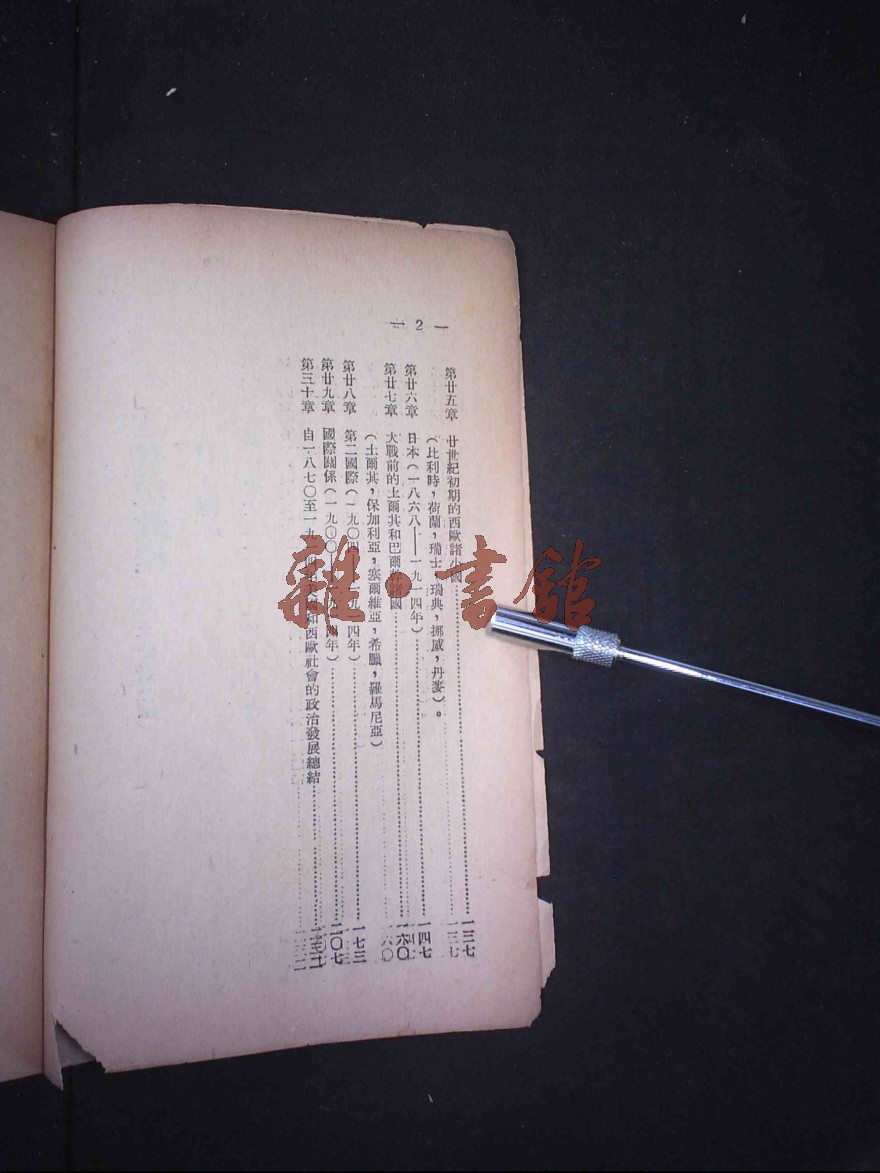 — 2 —
第廿五章 廿世紀初期的西歐諸小國 一三七
(比利時,荷蘭,瑞士,瑞典,挪威,丹麥)。
第廿六章 日本(一八六八——一九一四年) 一四七
第廿七章 大戰前的土爾其和巴爾幹諸國 一六〇
(土爾其,保加利亞,塞爾維亞,希臘,羅馬尼亞)
第廿八章 第二國際(一九〇四 一九一四年) 一七三
第廿九章 國際關係(一九〇〇 一九一四年) 二〇七
第三十章 自一八七〇至一九 和西歐社會的政治發展總結
雜·書館